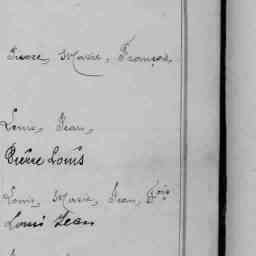 Pierre, Marie, François,
Louis, Jean,
Pierre Louis
Louis, Marie, Jean, Fois
Louis Jean